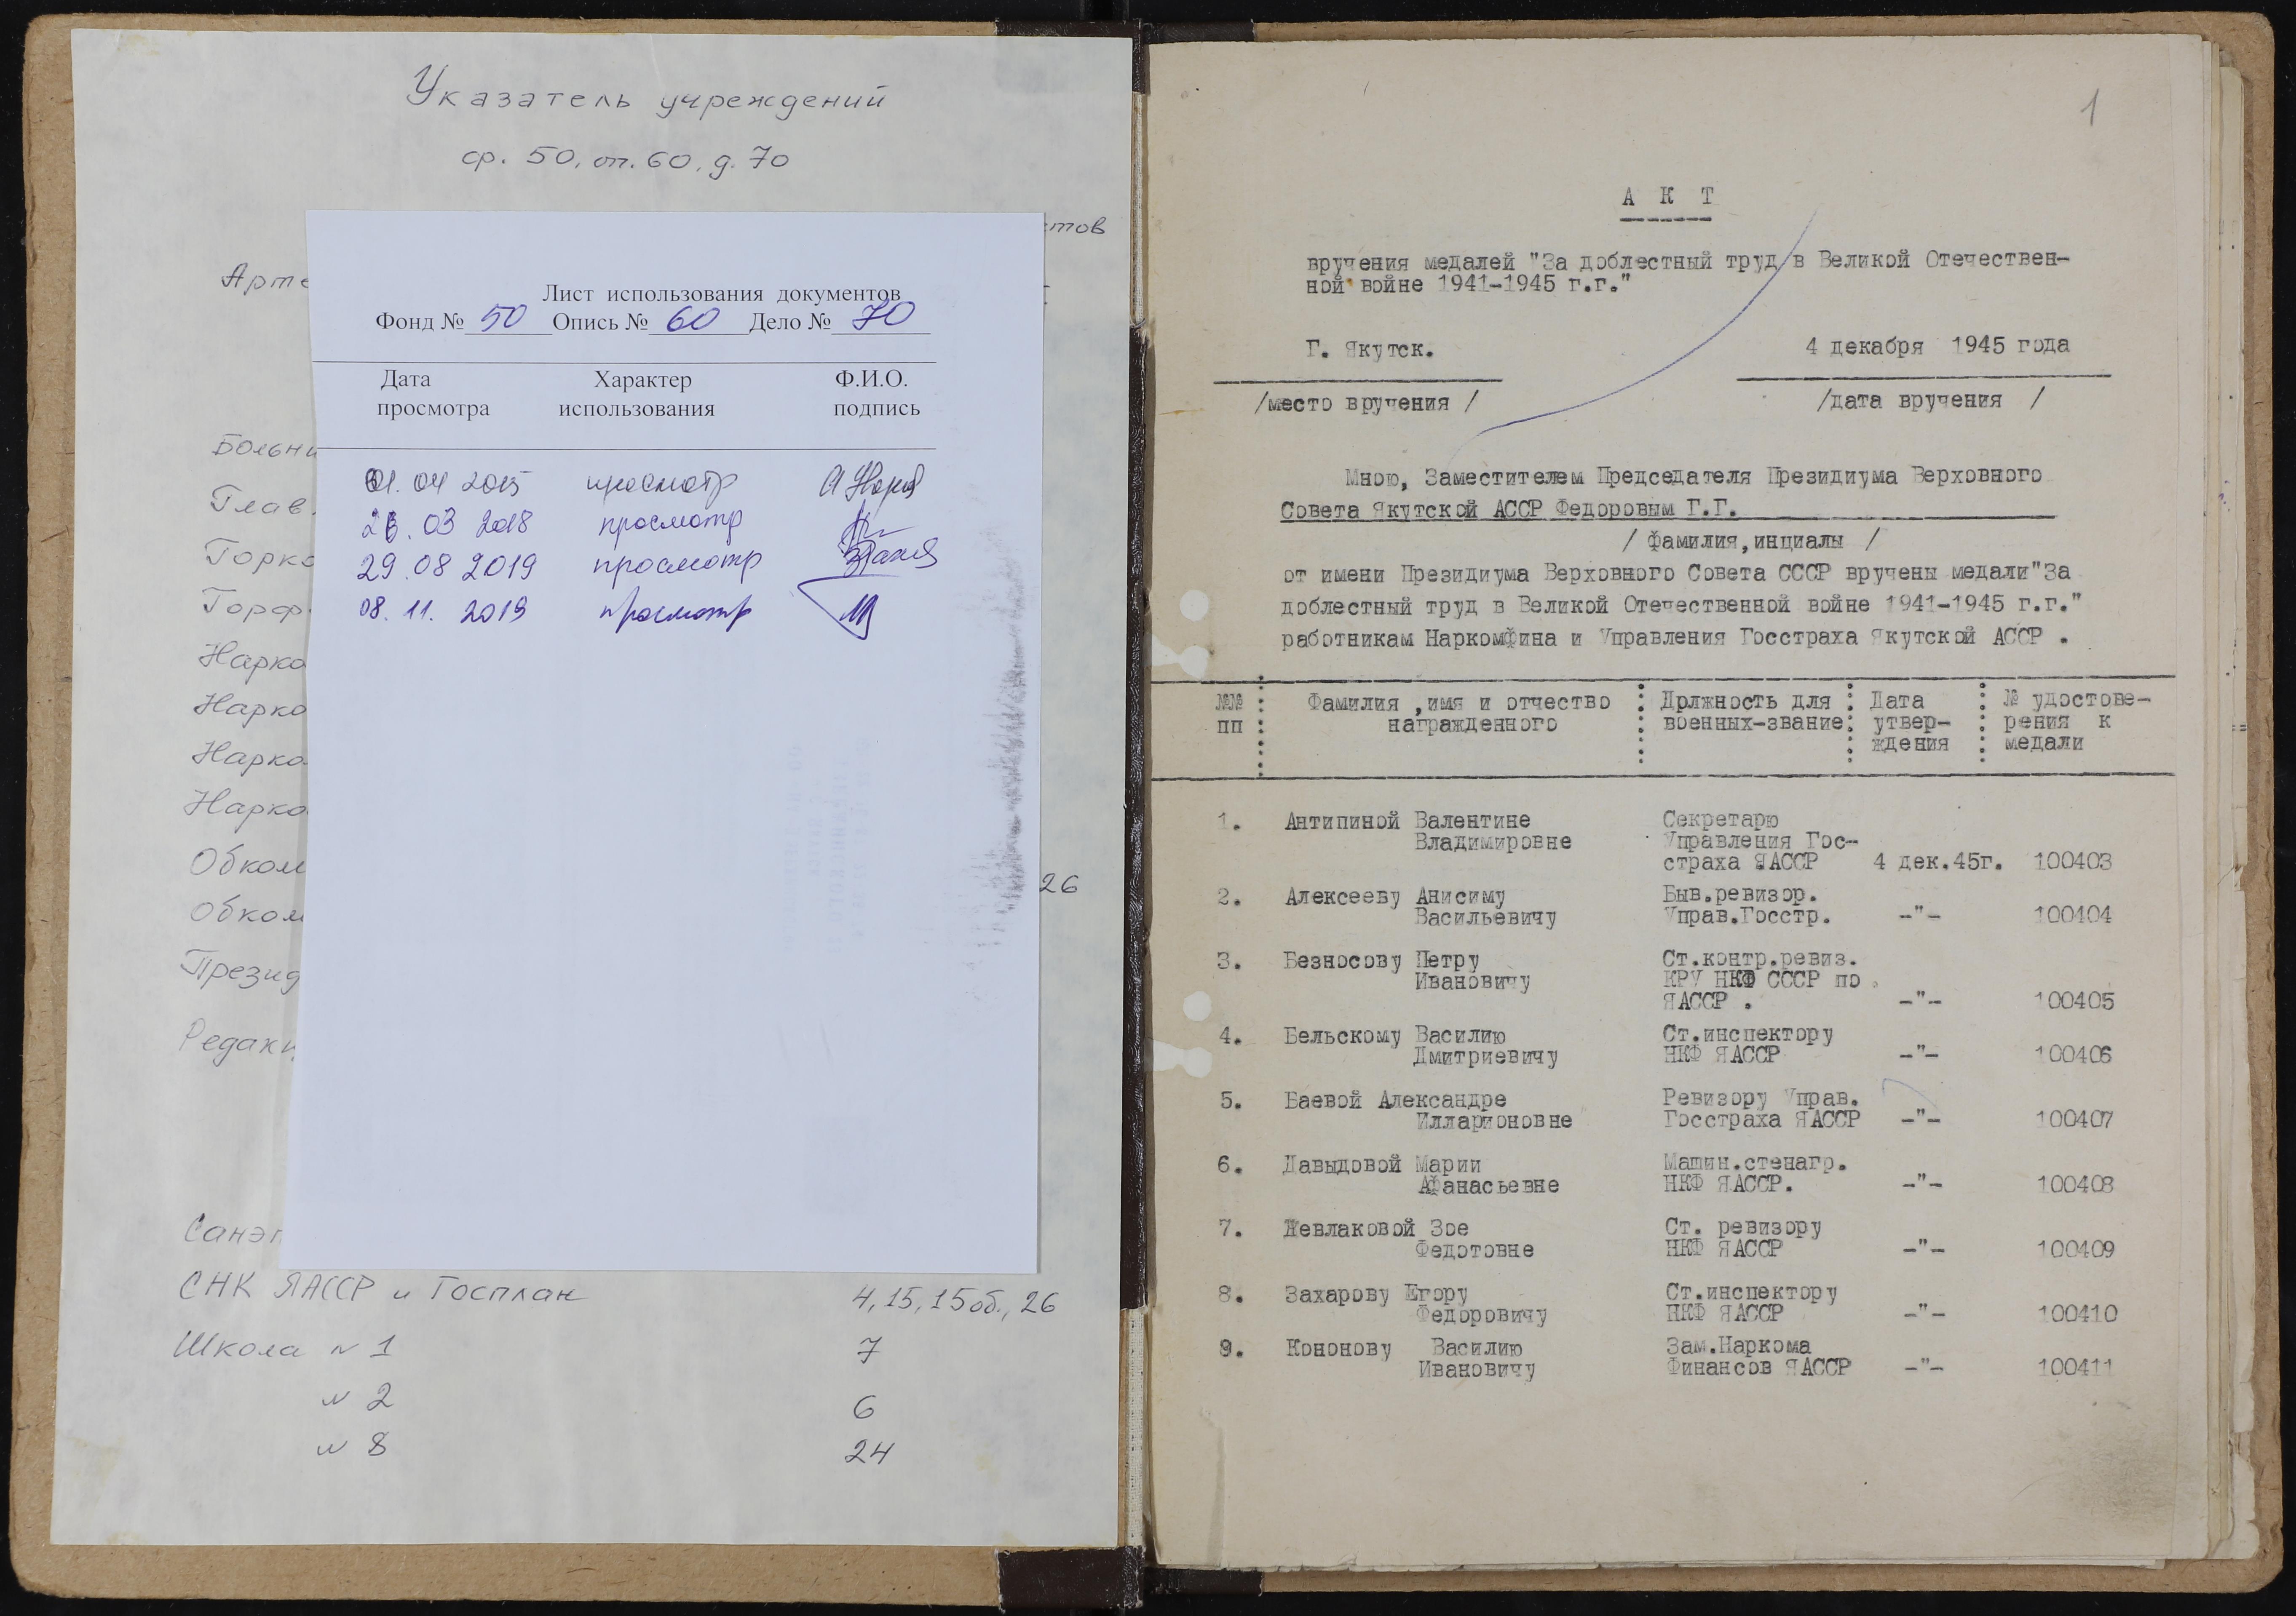 Указатель учреждений
ф. 50, оп. 60, д. 70
Больни
Глав.
Нарко
Нарко
Нарко
Нарко
Обком
26
Обком
Презид
Редакц
СНК ЯАССР и Госплан 4, 15, 15об., 26
Школа № 1 7
№ 2 6
№ 8 24
Лист использования документов
Фонд № 50 Опись № 60 Дело № 70
Дата Характер Ф.И.О.
просмотра использования подпись
01.04 2015 просмотр
03 2018 просмотр
29.08 2019 просмотр
08. 11. 2019 просмотр
1
А К Т
вручения медалей "За доблестный труд в Великой Отечествен-
ной войне 1941-1945 г.г."
Г. Якутск. 4 декабря 1945 года
/место вручения / /дата вручения /
Мною, Заместителем Председателя Президиума Верховного
Совета Якутской АССР Федоровым Г.Г.
/ фамилия,инциалы /
от имени Президиума Верховного Совета СССР вручены медали"За
доблестный труд в Великой Отечественной войне 1941-1945 г.г."
работникам Наркомфина и Управления Госстраха Якутской АССР .
№№ Фамилия ,имя и отчество Дрлжность для Дата № удостове-
пп награжденного военных-звание утвер- рения к
ждения медали
1. Антипиной Валентине Секретарю
Владимировне Управления Гос-
страха ЯАССР 4 дек.45г. 100403
2. Алексееву Анисиму Быв.ревизор.
Васильевичу Управ.Госстр. -"- 100404
3. Безносову Петру Ст.контр.ревиз.
Ивановичу КРУ НКФ СССР по
ЯАССР . -"- 100405
4. Бельскому Василию Ст.инспектору
Дмитриевичу НКФ ЯАССР -"- 100406
5. Баевой Александре Ревизору Управ.
Илларионовне Госстраха ЯАССР -"- 100407
6. Давыдовой Марии Машин.стенагр.
Афанасьевне НКФ ЯАССР. -"- 100408
7. Жевлаковой Зое Ст. ревизору
Федотовне НКФ ЯАССР -"- 100409
8. Захарову Егору Ст.инспектору
Федоровичу НКФ ЯАССР -"- 100410
9. Кононову Василию Зам.Наркома
Ивановичу Финансов ЯАССР -"- 100411